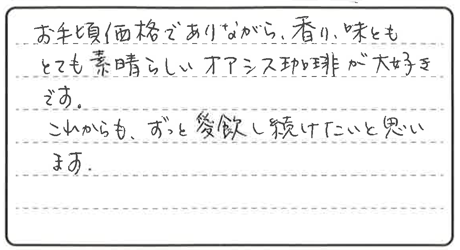 お手頃価格でありながら、香り、味とも
とても素晴らしいオアシス珈琲が大好き
です。
これからも、ずっと愛飲し続けたいと思い
ます.